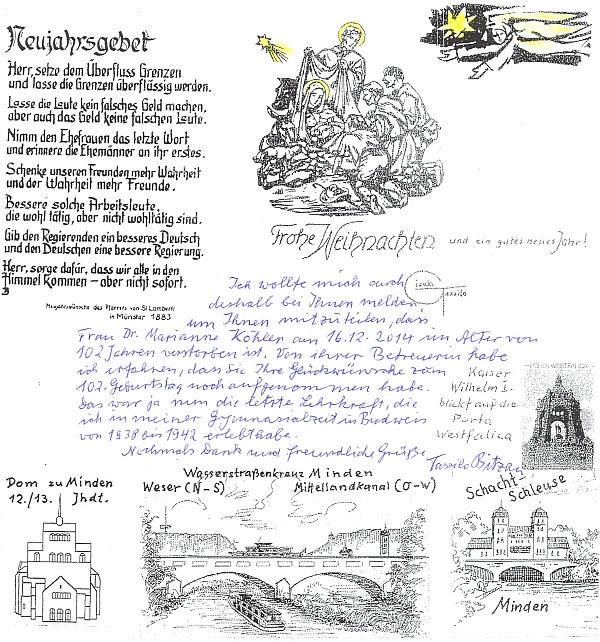 Neujahrsgebet
Herr, setze dem Überfluss Grenzen
und lasse die Grenzen überflüssig werden.
Lasse die Leute kein falsches Geld machen,
aber auch das Geld keine falschen Leute.
Nimm den Ehefrauen das letzte Wort
und erinnere die Ehemänner an ihr erstes.
Schenke unseren Freunden mehr Wahrheit
und der Wahrheit mehr Freunde.
Bessere solche Arbeitsleute,
die wohl tätig, aber nicht wohltätig sind.
Gib den Regierenden ein besseres Deutsch
und den Deutschen eine bessere Regierung.
Herr, sorge dafür, dass wir alle in den
Himmel kommen – aber nicht sofort.
Neujahrswünsche des Pfarrers von St Lamberti
in Münster 1883
Frohe Weihnachten und ein gutes neues Jahr!
Ich wollte mich auch
deshalb bei Ihnen melden
um Ihnen mitzuteilen, daß
Frau Dr. Marianne Köhler am 16.12.2014 im Alter von
102 Jahren verstorben ist. Von ihrer Betreuerin habe
ich erfahren, daß sie Ihre Glückwünsche zum
102. Geburtstag noch aufgenommen habe.
Das war ja nun die letzte Lehrkraft, die
ich in meiner Gymnasialzeit in Budweis
von 1938 bis 1942 erlebt habe.
Nochmals Dank und freundliche Grüße
Kaiser
Wilhelm I.
blickt auf die
Porta
Westfalica
Dom zu Minden
12./13. Jhdt.
Wasserstraßenkreuz Minden
Weser (N-S) Mittellandkanal (O-W)
Schacht-
Schleuse
Minden